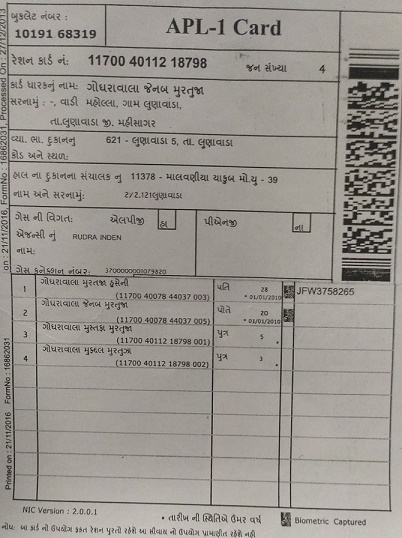 બુકલેટ નંબર :
10191 68319
APL-1 Card
રેશન કાર્ડ નં: 11700 40112 18798 જન સંખ્યા 4
કાર્ડ ધારકનું નામ: ગોધરાવાલા જેનબ મુરતુજા
સરનામું : -, વાડી મહોલ્લા, ગામ લુણાવાડા,
તા.લુણાવાડા જી. મહીસાગર
વ્યા. ભા. દુકાનનુ 621 - લુણાવાડા 5, તા. લુણાવાડા
કોડ અને સ્થળ:
હાલ ના દુકાનના સંચાલક નુ 11378 - માલવણીયા યાકુબ મો.યુ - 39
નામ અને સરનામું: 2/2,121લુણાવાડા
ગેસ ની વિગત: એલપીજી હા પીએનજી ના
એજન્સી નું RUDRA INDEN
નામ:
ગેસ કનેક્શન નંબર: 3700000001079820
1 ગોધરાવાલા મુરતજા હુસેની પતિ 28 JFW3758265
(11700 40078 44037 003) * 01/01/2010
2 ગોધરાવાલા જેનબ મુરતુજા પોતે 20
(11700 40078 44037 005) * 01/01/2010
3 ગોધરાવાલા મુસ્તફા મુરતુજા પુત્ર 5
(11700 40112 18798 001) *
4 ગોધરાવાલા મુફદલ મુરતુઝા પુત્ર 3
(11700 40112 18798 002) *
NIC Version : 2.0.0.1
* તારીખ ની સ્થિતિએ ઉમર વર્ષ Biometric Captured
નોંધ: આ કાર્ડ નો ઉપયોગ ફક્ત રેશન પુરતો રહેશે આ સીવાય નો ઉપયોગ પ્રામાણીત રહેશે નહી
Printed on : 21/11/2016 FormNo : 16862031
on : 21/11/2016, FormNo : 16862031, Processed On : 27/12/2013